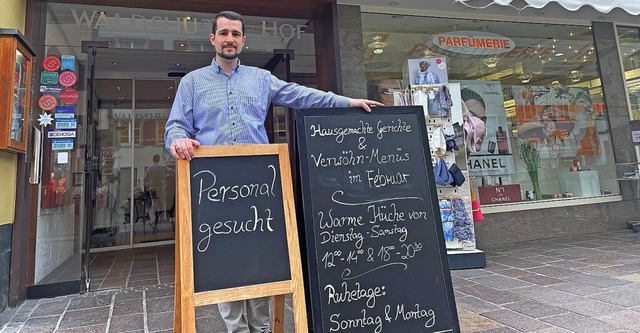 WALDSHUTER HOF
PARFÜMERIE
CHANEL
DEHOGA
WALDSHUT
Personal
gesucht
Hausgemachte Gerichte
&
Verwöhn-Menüs
im Februar
Warme Küche von
Dienstag-Samstag
12.00-14.00 & 18.00-20.30
Ruhetage:
Sonntag & Montag
CHANEL
N°1
CHANEL